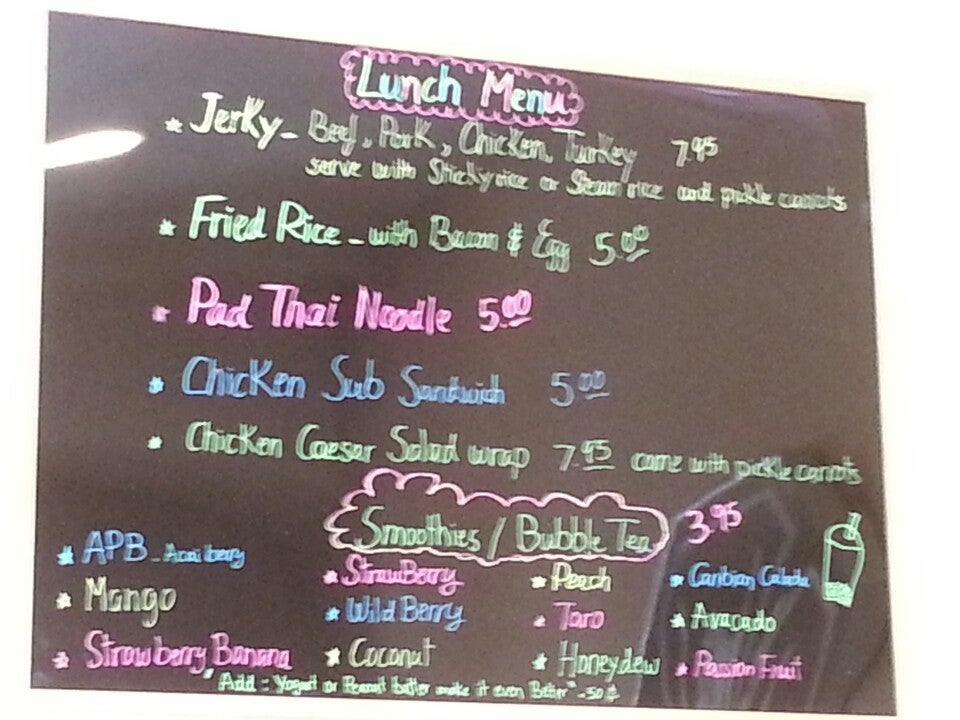 Lunch Menu
* Jerky - Beef, Pork, Chicken, Turkey 7.95
serve with Stickyrice or Steam rice and pickle carrots
* Fried Rice - with Bacon & Egg 5.00
* Pad Thai Noodle 5.00
* Chicken Sub Sandwich 5.00
* Chicken Caesar Salad wrap 7.95 come with pickle carrots
Smoothies / Bubble Tea 3.95
* APB - Acai berry
* StrawBerry
* Peach
* Caribian Calada
* Mango
* Wild Berry
* Taro
* Avocado
* Strawberry Banana
* Coconut
* Honeydew
* Passion Fruit
"Add = Yogurt or Peanut butter make it even Better" - 50¢